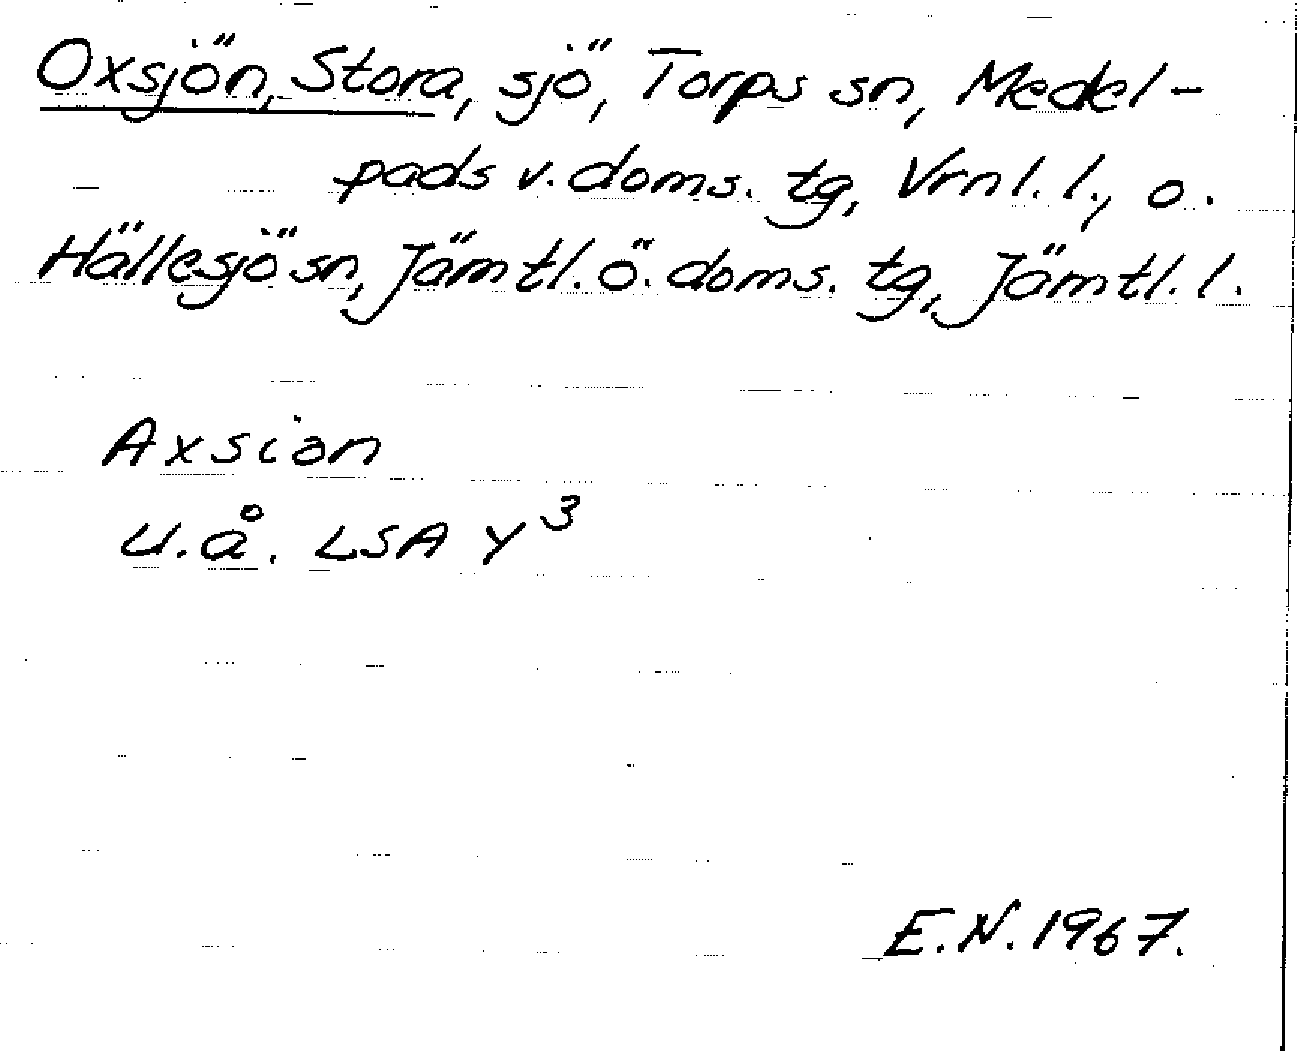 Oxsjön, Stora, sjö, Torps sn, Medel-
pads v. doms. tg, Vrnl. l., o.
Hällesjö sn, Jämtl. ö. doms. tg, Jämtl. l.
Axsion
u.å. LSA Y3
E.N. 1967.